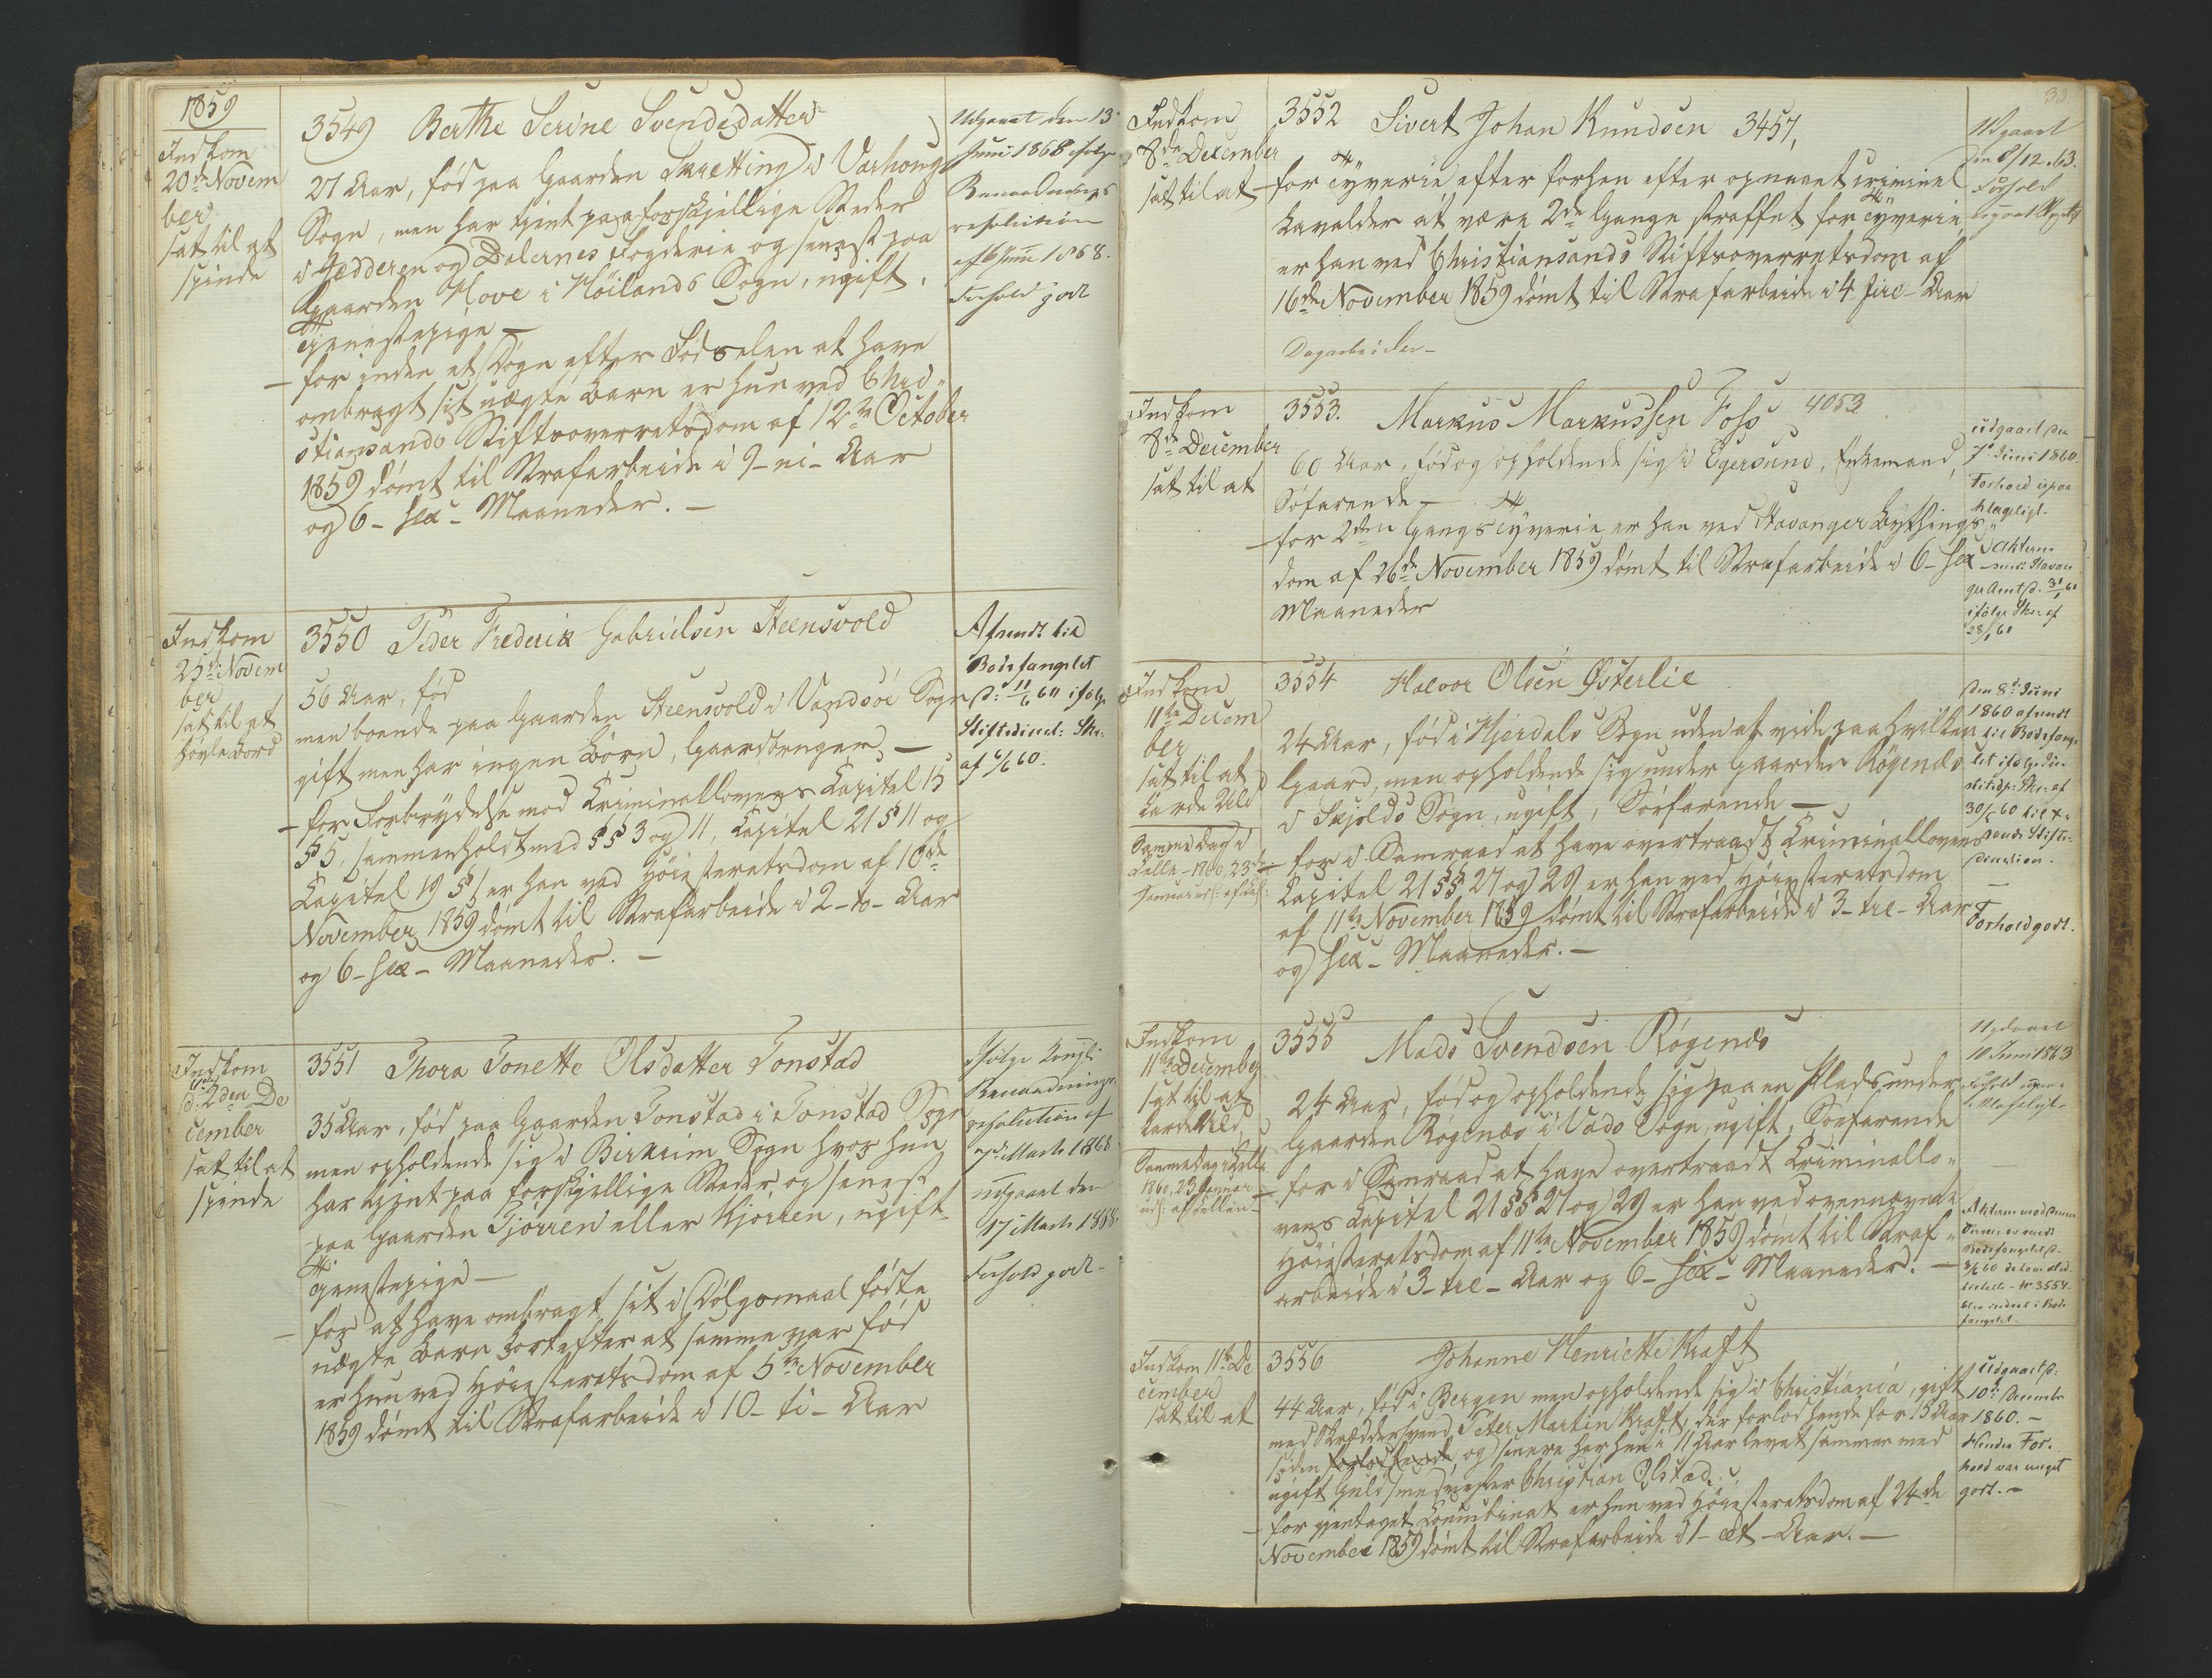 1859
Indkom
20de Novem
ber
sat til at
spinde
3549 Berthe Serine Svendsdatter
27 Aar, fød paa Gaarden Skretting i Varhougs
Sogn, men har tjent paa forskjellige Steder
i Jædderen og Dalernes Fogderie og senest paa
Gaarden Hove i Höilands Sogn, ugift,
Tjenestepige –
– for inden et Døgn efter Fødselen at have
ombragt sit uægte Barn er hun ved Chri-
stiansands Stiftsoverretsdom af 12te October
1859 dømt til Strafarbeide i 9 – ni – Aar
og 6 – sex – Maaneder. –
Udgaaet den 13
Juni 1868 ifølge
Benaadnings
resolution
af 6 Juni 1868.
Forhold godt
Indkom
25de Novem
ber
sat til at
høvle Bord
3550 Peder Frederik Gabrielsen Steensvold
56 Aar, fød
men boende paa Gaarden Steensvold i Vandsöe Sogn
gift men har ingen Børn, Gaardbruger –
– for Forbrydelse mod Criminallovens Capitel 15
§ 5, sammenholdt med §§ 3 og 11, Capitel 21 § 11 og
Capitel 19 § 1 er han ved Höiesteretsdom af 10de
November 1859 dømt til Strafarbeide i 2 – to – Aar
og 6 – sex – Maaneder. –
Afsendt til
Bodsfængslet
d: 11/6 60 ifølge
Stiftsdirect: Skr:
af 6/6 60.
Indkom
d. 2den De
cember
sat til at
spinde
3551 Thora Tonette Olsdatter Tonstad
35 Aar, fød paa Gaarden Tonstad i Tonstad Sogn
men opholdende sig i Birkrim Sogn hvor hun
har tjent paa forskjellige Steder og senest
paa Gaarden Tjörren eller Kjörren, ugift
Tjenestepige –
– for at have ombragt sit i Dølgsmaal fødte
uægte Barn kort efter at samme var fød
er hun ved Höiesteretsdom af 5te November
1859 dømt til Strafarbeide i 10 – ti – Aar
Ifølge Kongl:
Benaadnings
resolution af
7de Marts 1868
udgaaet den
17 Marts 1868.
Forhold godt –
33.
Indkom
8de December
sat til at
3552 Sivert Johan Knudsen 3457,
for Tyverie, efter forhen efter opnaaet criminel
Lavalder at være 2de Gange straffet for Tyverie,
er han ved Christiansands Stiftsoverretsdom af
16de November 1859 dømt til Strafarbeide i 4 – fire – Aar
Dagarbeider –
Udgaaet
den 8/12. 63.
Forhold
Indkom
8de December
sat til at
3553. Markus Markussen Foss 4053
60 Aar, fød og opholdende sig i Egersund, Enkemand,
Söfarende –
– for 2den Gangs Tyverie er han ved Stavanger Bythings-
dom af 26de November 1859 dømt til Strafarbeide i 6 – sex –
Maaneder
udgaaet den
7de Juni 1860.
Forhold upaa
klageligt.
Akterne
sendt Stavan
ger Amt d. 31/1 61
ifølge Skr. af
28/1 61
Indkom
11te Decem
ber
sat til at
karde Uld
Samme Dag i
Celle – 1860, 23de
Januar
3554 Halvor Olsen Østerlie
24 Aar, fød i Hjerdals Sogn uden at vide paa hvilken
Gaard, men opholdende sig under Gaarden Rögenæs
i Skjolds Sogn, ugift, Söfarende –
– for i Samraad at have overtraadt Criminallovens
Capitel 21 §§ 27 og 29 er han ved Höiesteretsdom
af 11te November 1859 dømt til Strafarbeide i 3 – tre – Aar
og sex – Maaneder. –
Den 8de Juni
1860 afsendt
til Bodsfæng
slet ifølge Ju
stitsdp: Skr: af
30/5 60 til Xs
sands Stifts-
direction. –
Forhold godt.
Indkom
11te Decembr
sat til at
karde Uld,
Samme Dag i Celle
1860, 23 Januar
uds: af Cellen –
3555 Mads Svendsen Rögenæs
24 Aar, fød og opholdende sig paa en Plads under
Gaarden Rögenæs i Vads Sogn, ugift, Söefarende
– for i Samraad at have overtraadt Criminallo-
vens Capitel 21 §§ 27 og 29 er han ved ovennævnte
Höiesteretsdom af 11te November 1859 dømt til Straf-
arbeide i 3 – tre – Aar og 6 – sex – Maaneder. –
Udgaaet
10 Juni 1863
Forhold upaa-
klageligt –
Akterne mod denne
Bodsfængslet d.
No 3554
blev indsat i Bods
fængslet –
Indkom 11te De
cember
sat til at
3556 Johanne Henriette Kraft
44 Aar, fød i Bergen men opholdende sig i Christiania, gift
med Skræddersvend Peter Martin Kraft, der forlod hende for 15 Aar
siden forlod hende, og senere har hun i 11 Aar levet sammen med
ugift Guldsmedmester Christian Olstad.
– for gjentaget Concubinat er hun ved Höiesteretsdom af 24de
November 1859 dømt til Strafarbeide i 1 – et – Aar. –
Udgaaet d:
10de December
1860. –
Hendes For-
hold var meget
godt. –